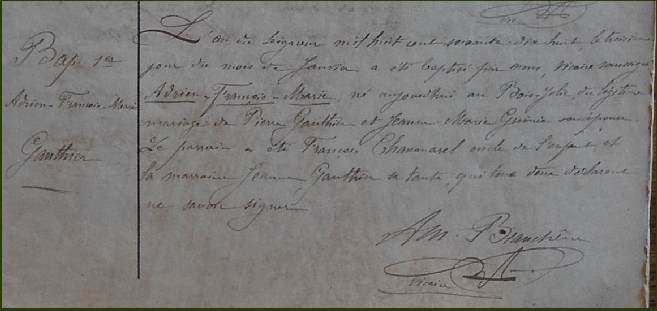 Bap. 1a
Adrien-François-Marie
Gauthier
L'an du Seigneur mil huit cent soixante-dix huit le troisième
jour du mois de Janvier a été baptisé par nous, vicaire soussigné
Adrien-François-Marie né aujourd'hui au Bois-Jolie du légitime
mariage de Pierre Gauthier et Jeanne Marie
Le parrain a été François Chammarel oncle de l'enfant et
la marraine Jeanne Gauthier sa tante, qui tous deux déclarent
ne savoir signer
Am.
vicaire